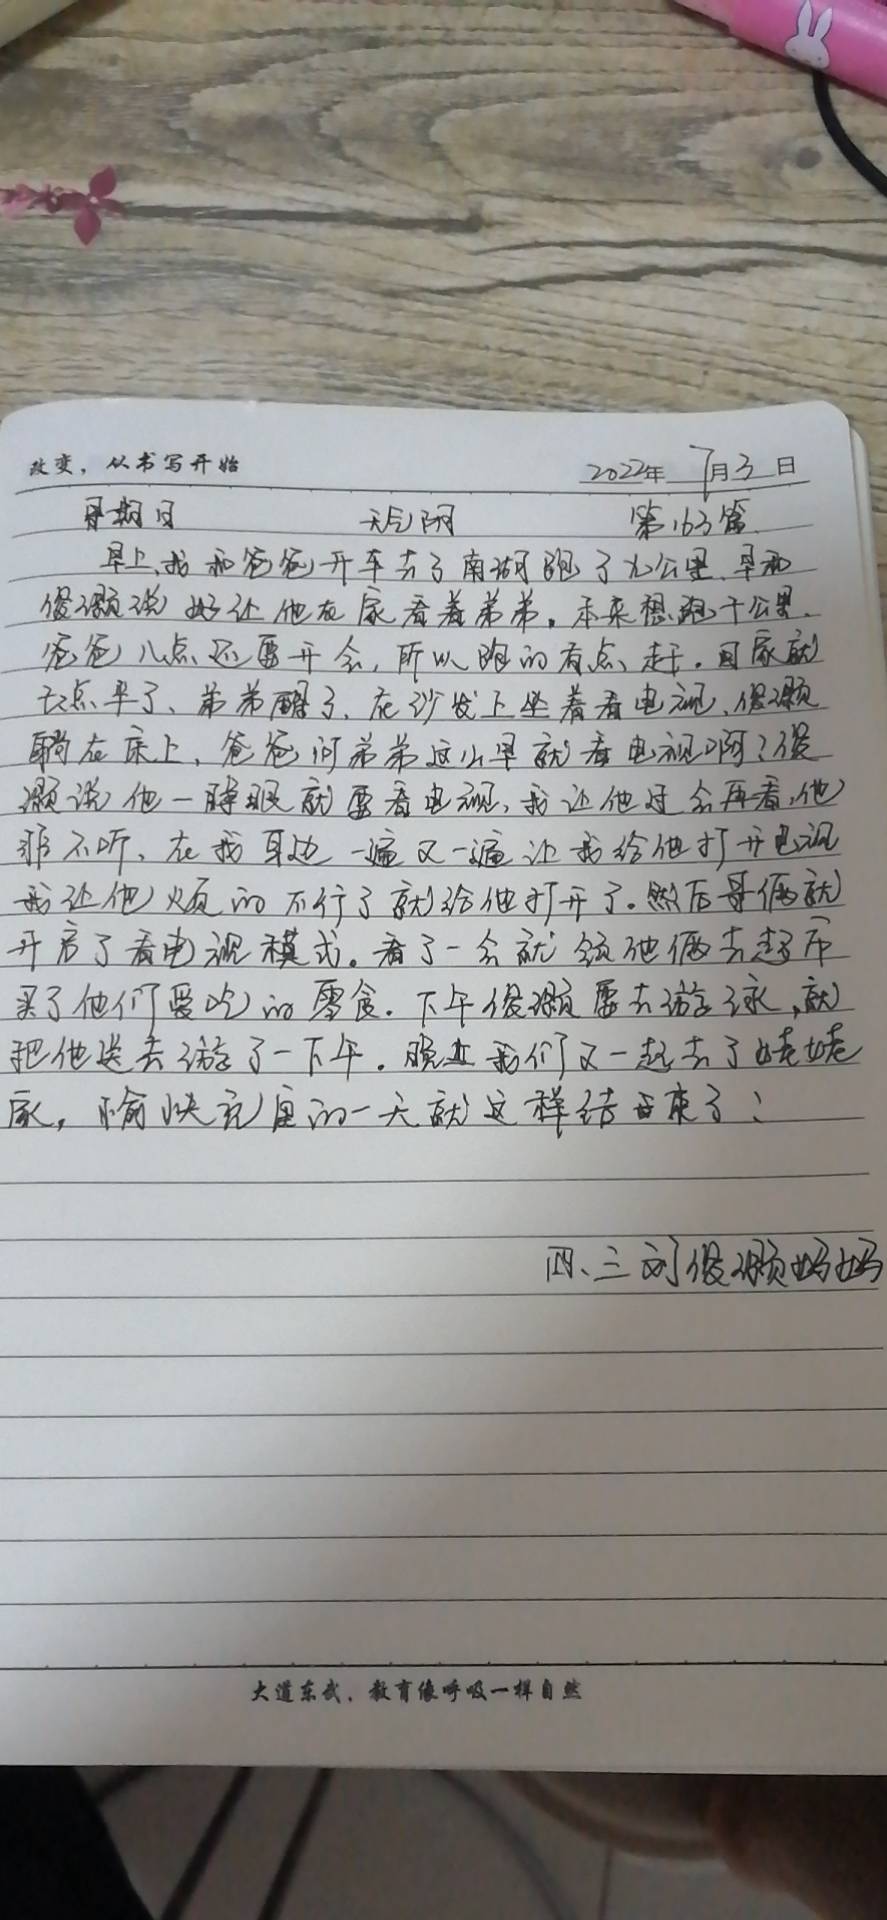 改变，从书写开始
2022年 7月3日
星期日 天气阴 第163篇
早上，我和爸爸开车去了南湖跑了九公里，早和
俊灏说好让他在家看着弟弟。本来想跑十公里，
爸爸八点还要开会，所以跑的有点赶。回家就
七点半了、弟弟醒了、在沙发上坐着看电视、俊灏
躺在床上，爸爸问弟弟这么早就看电视啊？俊
灏说他一睁眼就要看电视，我让他过会再看，他
非不听、在我耳边一遍又一遍让我给他打开电视
我让他烦的不行了就给他打开了。然后哥俩就
开启了看电视模式。看了一会就领他俩去超市
买了他们爱吃的零食。下午俊灏要去游泳，就
把他送去游了一下午。晚上我们又一起去了姥姥
家，愉快充实的一天就这样结束了！
四、三刘俊灏妈妈
大道东武，教育像呼吸一样自然